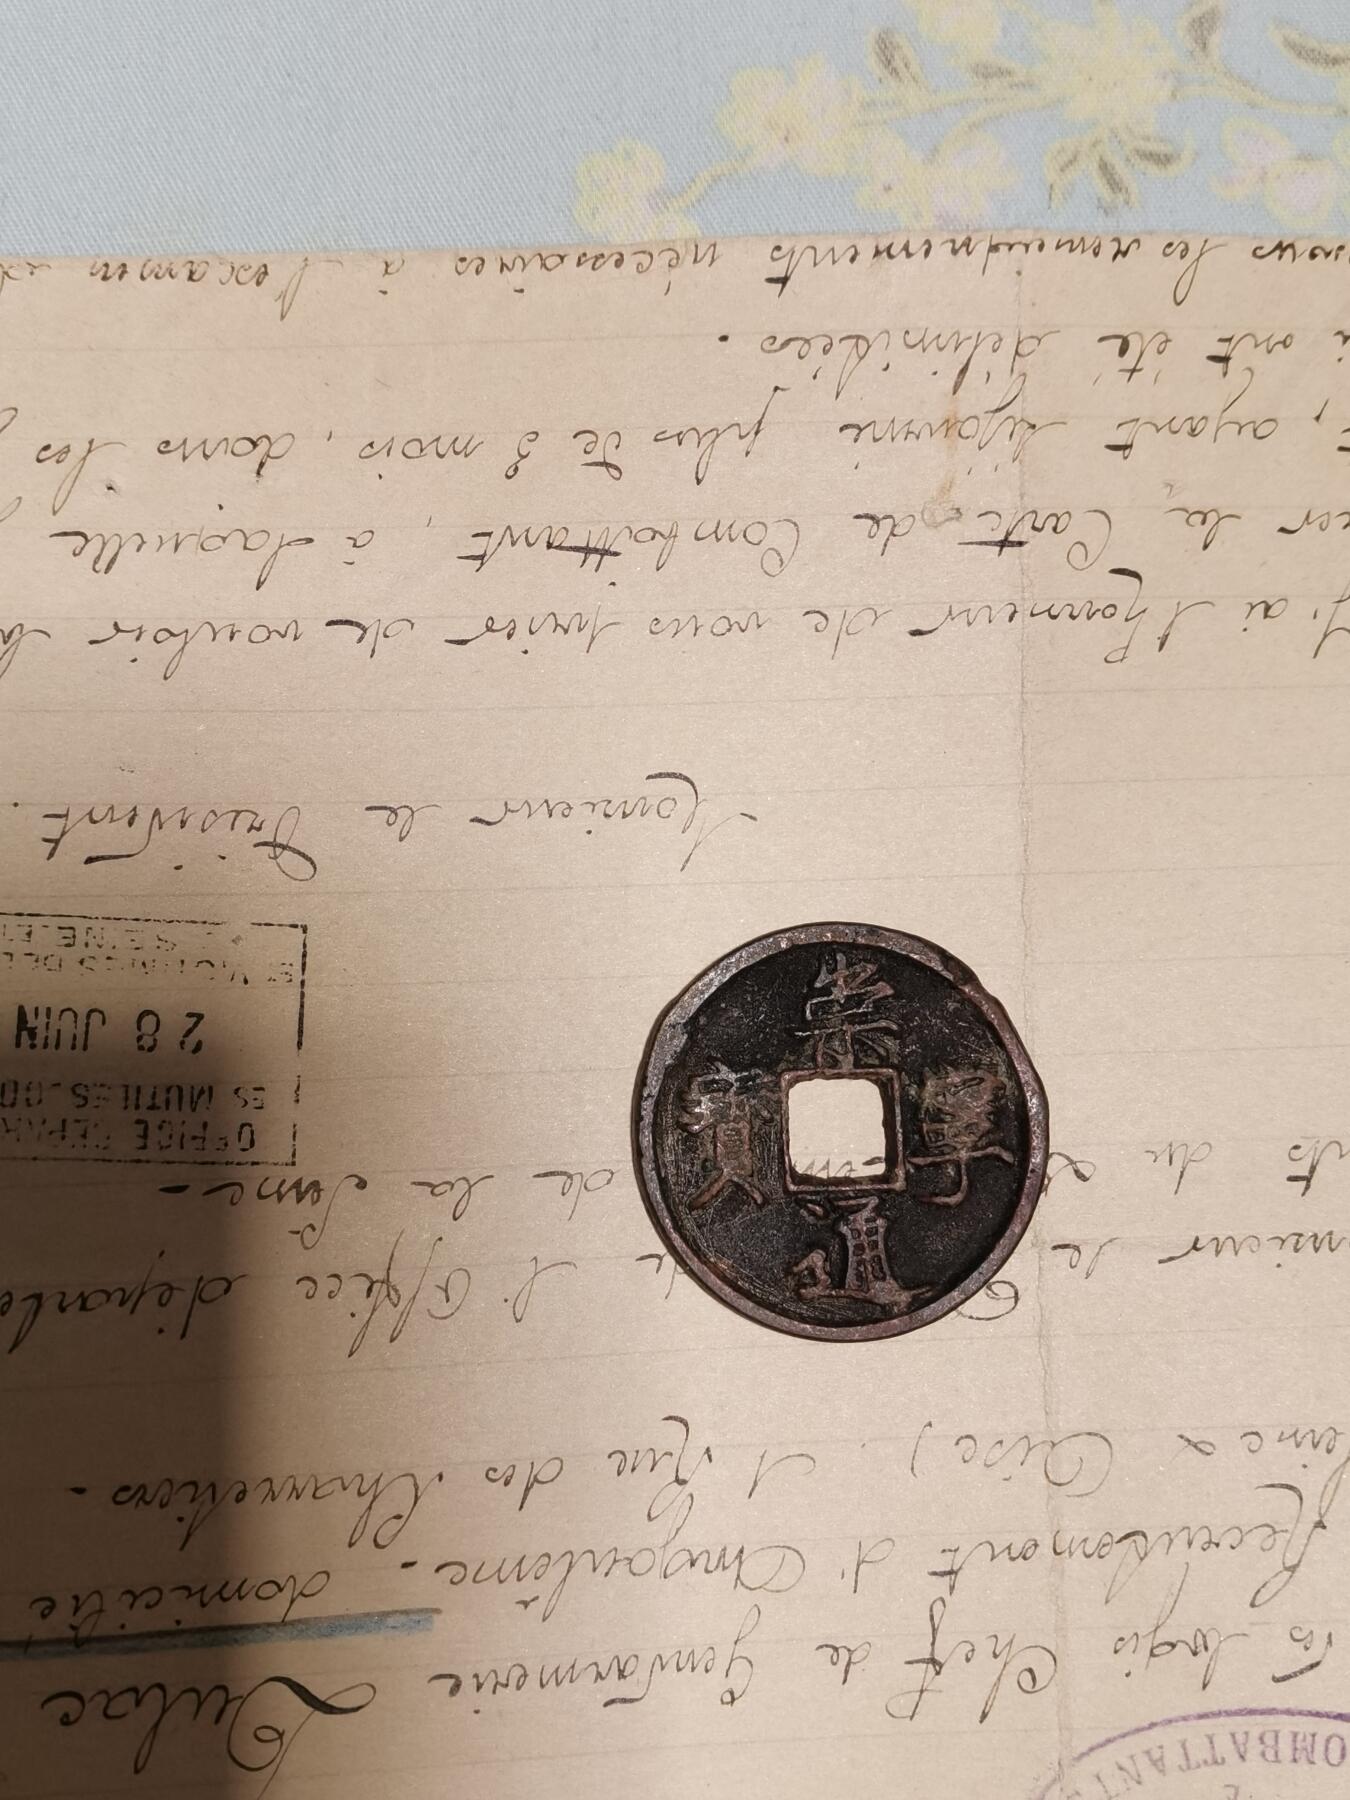 COMBATTANT
logis Chef de Gendarmerie Dulac
Recrutement d'Angoulême - domicilié
Seine & Oise). 1 Rue des Charretiers -
nsieur le de l'Office départe
ts du de la Seine -
OFFICE DEPAR
ES MUTILES.CO
28 JUIN
ET VICTIMES DE L
SEINE-ET
Monsieur le Président.
J'ai l'honneur de vous prier de vouloir b
er la Carte de Combattant, à laquelle
, ayant séjourné plus de 3 mois, dans les
i ont été délimitées.
les renseignements nécessaires à l'examen
崇寧通寶